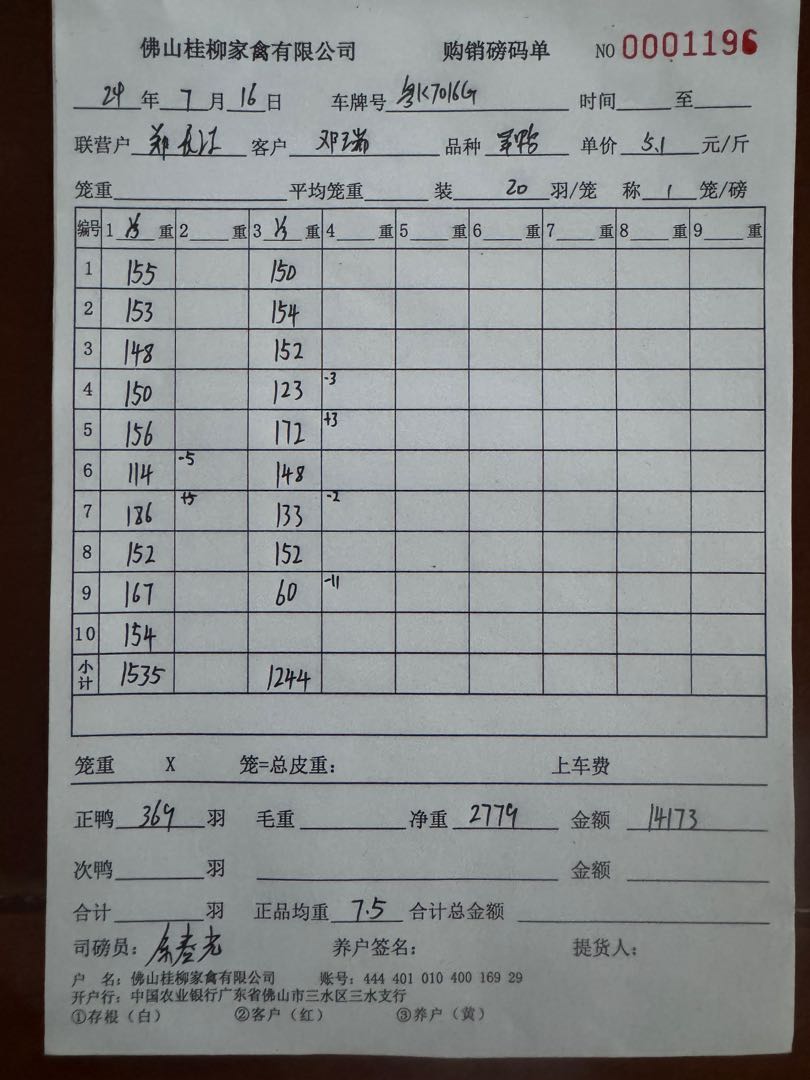 佛山桂柳家禽有限公司 购销磅码单 NO 0001196
24 年 7 月 16 日 车牌号 粤K7016G 时间 至
联营户 郑长江 客户 邓瑞 品种 单价 5.1 元/斤
笼重 平均笼重 装 20 羽/笼 称 1 笼/磅
编号 1 重 2 重 3 重 4 重 5 重 6 重 7 重 8 重 9 重
1 155 150
2 153 154
3 148 152
4 150 123 -3
5 156 172 +3
6 114 -5 148
7 186 +5 133 -2
8 152 152
9 167 60 -11
10 154
小计 1535 1244
笼重 X 笼=总皮重： 上车费
正鸭 369 羽 毛重 净重 2779 金额 14173
次鸭 羽 金额
合计 羽 正品均重 7.5 合计总金额
司磅员： 养户签名： 提货人：
户 名：佛山桂柳家禽有限公司 账号：444 401 010 400 169 29
开户行：中国农业银行广东省佛山市三水区三水支行
①存根（白） ②客户（红） ③养户（黄）